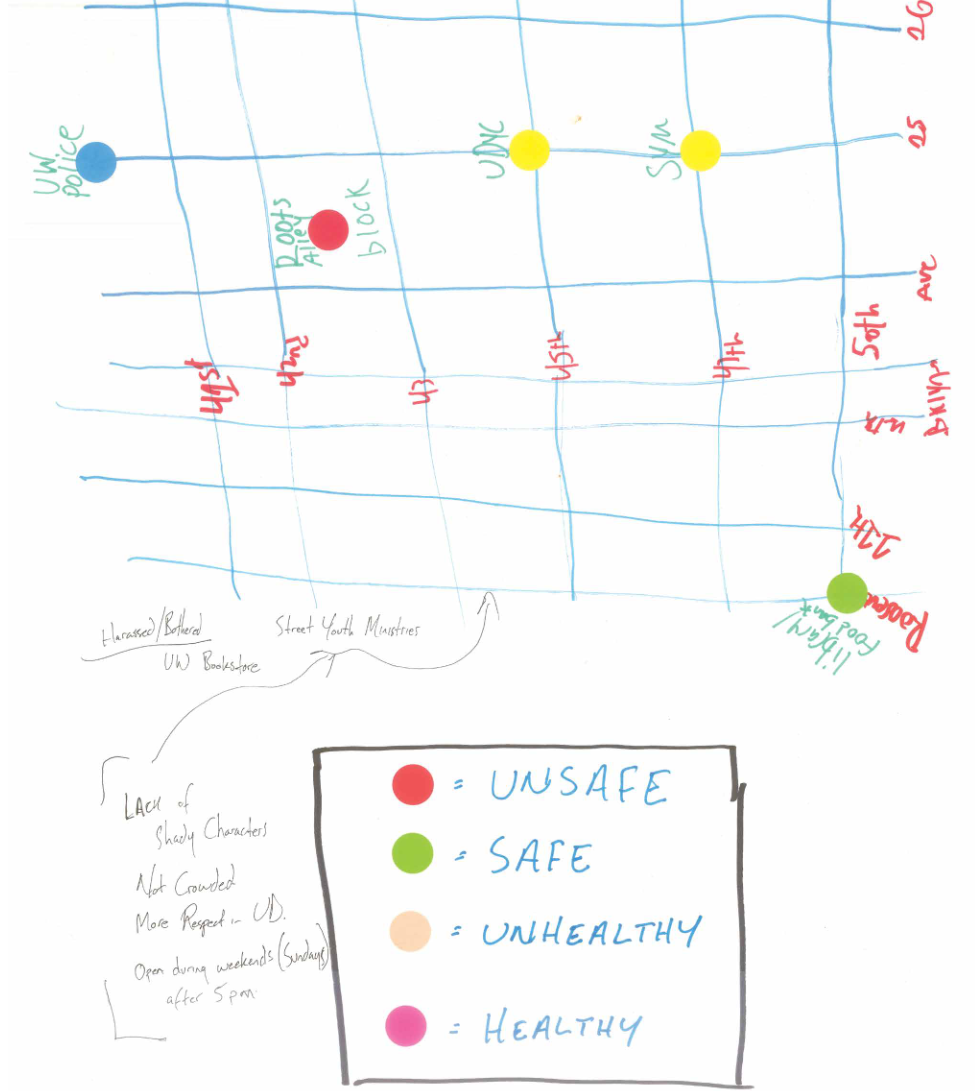 26
25
UW
police
UDYC
SYM
Roots
Alley
block
Ave
41st
42nd
43
45th
47th
50th
11th
library/
Foodbank
Harassed/Bothered
UW Bookstore
Street Youth Ministries
LACK of
Shady Characters
Not Crowded
More Respect in UD.
Open during weekends (Sundays)
after 5 pm.
= UNSAFE
= SAFE
= UNHEALTHY
= HEALTHY